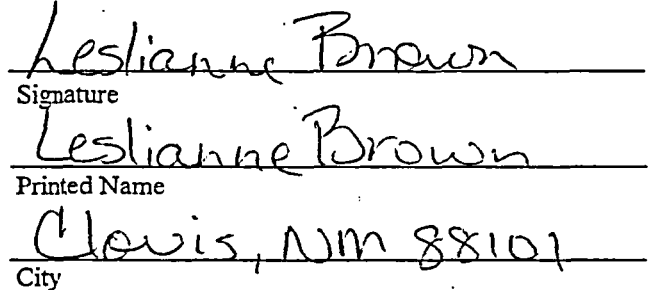 Leslianne Brown
Signature
Leslianne Brown
Printed Name
Clovis, NM 88101
City